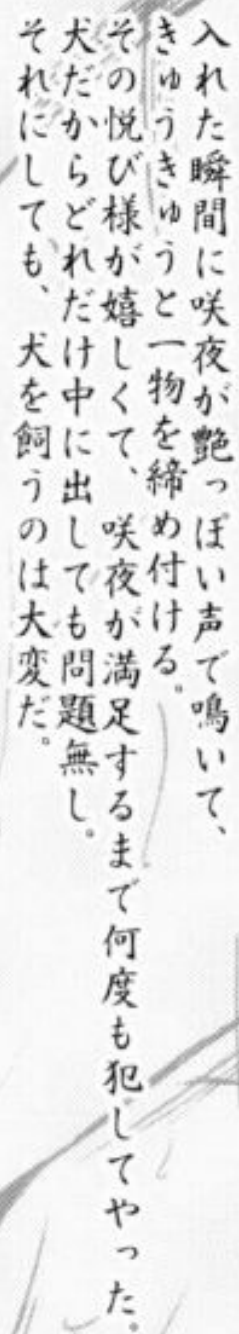 入れた瞬間に咲夜が艶っぽい声で鳴いて、
きゅうきゅうと一物を締め付ける。
その悦び様が嬉しくて、咲夜が満足するまで何度も犯してやった。
犬だからどれだけ中に出しても問題無し。
それにしても、犬を飼うのは大変だ。